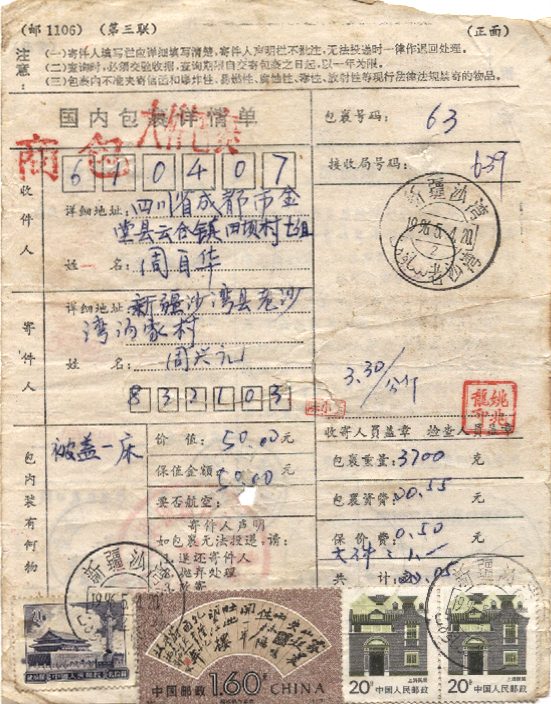 (邮1106) (第三联) (正面)
注意:
(一)寄件人填写栏应详细填写清楚,寄件人声明栏不批注,无法投递时一律作退回处理。
(二)查询时,必须交验收据,查询期限自交寄包裹之日起,以一年为限。
(三)包裹内不准夹寄信函和爆炸性、易燃性、腐蚀性、毒性、放射性等现行法律法规禁寄的物品。
国内包裹详情单
商包
包裹号码: 63
接收局号码: 639
收件人
610407
详细地址: 四川省成都市金
堂县云合镇四坝村七组
姓 名: 周百华
新疆沙湾
1996.5.4.20
2
寄件人
详细地址: 新疆沙湾县老沙
湾沟家村
姓 名: 周兴元
832103
3.30/
收寄人员盖章 检查人员盖章
包内装有何物
被盖一床
价 值: 50.00元
保值金额: 50.00元
要否航空:
寄件人声明
如包裹无法投递,请:
1.退还寄件人
2.抛弃处理
包裹重量: 3700 克
包裹资费: 20.55 元
保价费: 0.50 元
共 计:
新疆沙湾
1996.5.4.20
中国人民邮政
中国邮政 1.60元 CHINA
上海民居
20分 中国人民邮政
上海民居
20分 中国人民邮政